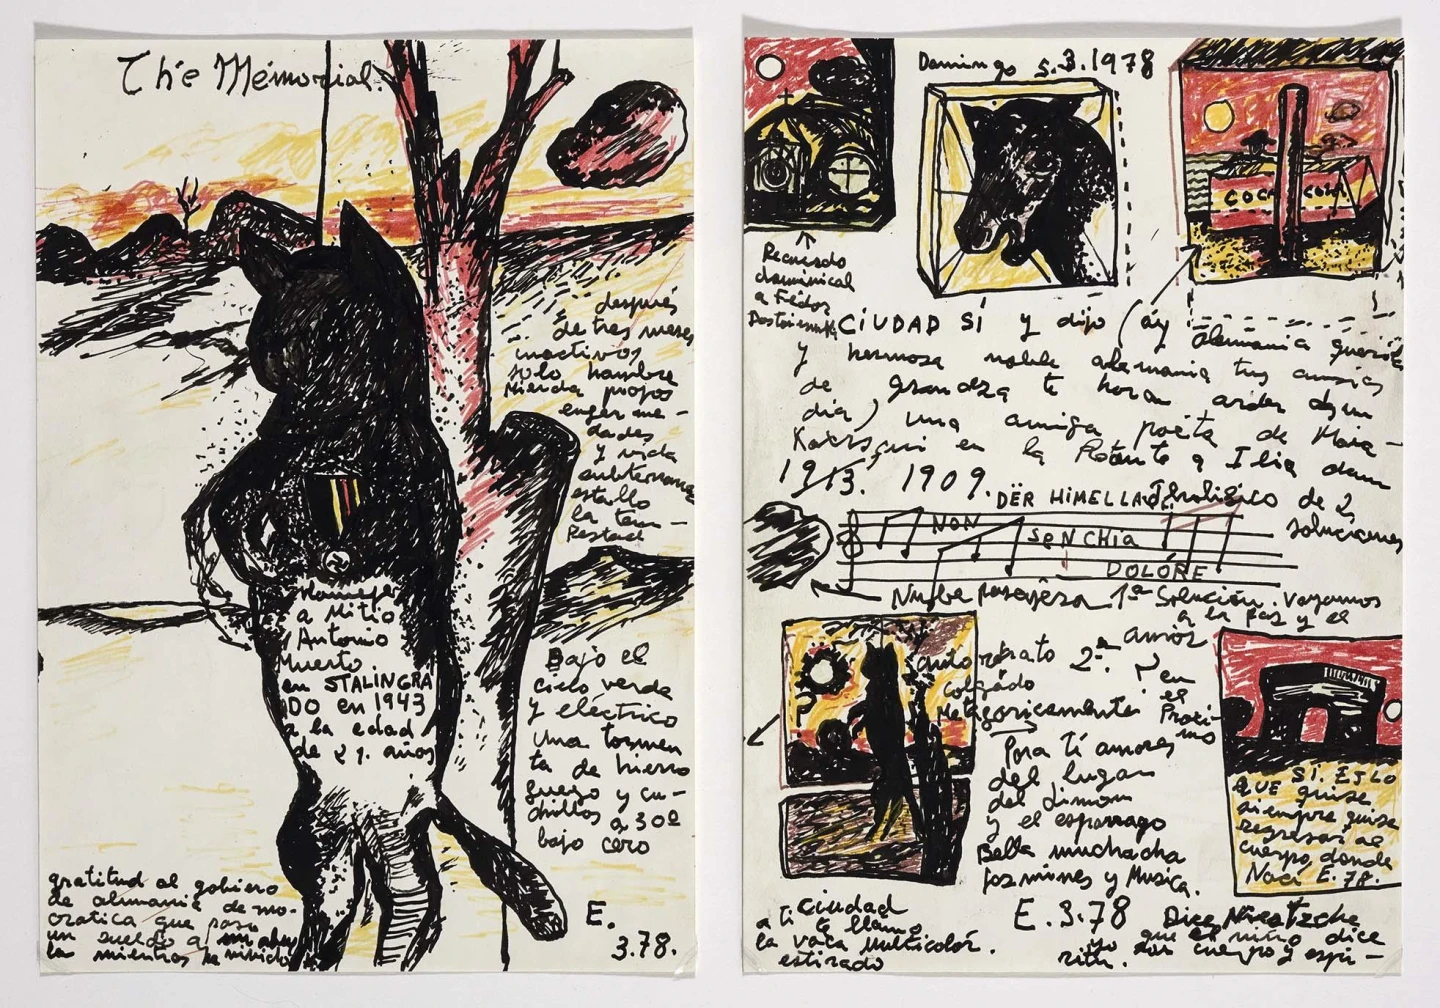 The Memorial.
después
de tres meses
inactivos
solo hambre
Mierda piojos
enferme-
dades
y vida
subterranea
estallo
la tem-
Pestad
Homenaje
a Mi tio
Antonio
Muerto
en STALINGRA
DO en 1943
a la edad
de 21. años
Bajo el
cielo verde
y eléctrico
una tormen
ta de hierro
fuego y cu-
chillos a 30º
bajo cero
gratitud al gobierno
de alemania demo-
cratica que paso
un sueldo a mi abue
la mientras ha vivido
E.
3.78.
Domingo 5.3.1978
COCA COLA
Recuerdo
dominical
a Fedor
Dostoiewski
CiUDAD Sí y dijo (áy Alemania querida
y hermosa noble alemania tus ansias
de grandeza te haran arder algun
dia) una amiga poéta de Maia-
Kowski en la flotante a Ilia
1913. 1909.
DËR HiMELLA
de 2
soluciones
NON
SeNCHia
DOLÓRE
Nube pasajera 1ª Solución. vayamos
a la paz y el
amor
autorretrato 2ª. en
colgado el
Metagoricamente Proxi-
mo
Para ti amores
del lugar
del limon
y el esparrago
Bella muchacha
Jazmines y Musica.
Sí. ES LO
QUE quise
siempre quise
regresar al
cuerpo donde
Nací E. 78.
ciudad
a ti te llamo
la vaca multicolór.
estirado
E. 3.78
Dice Nieetzche
que el niño dice
yo soy cuerpo y espi-
ritu.